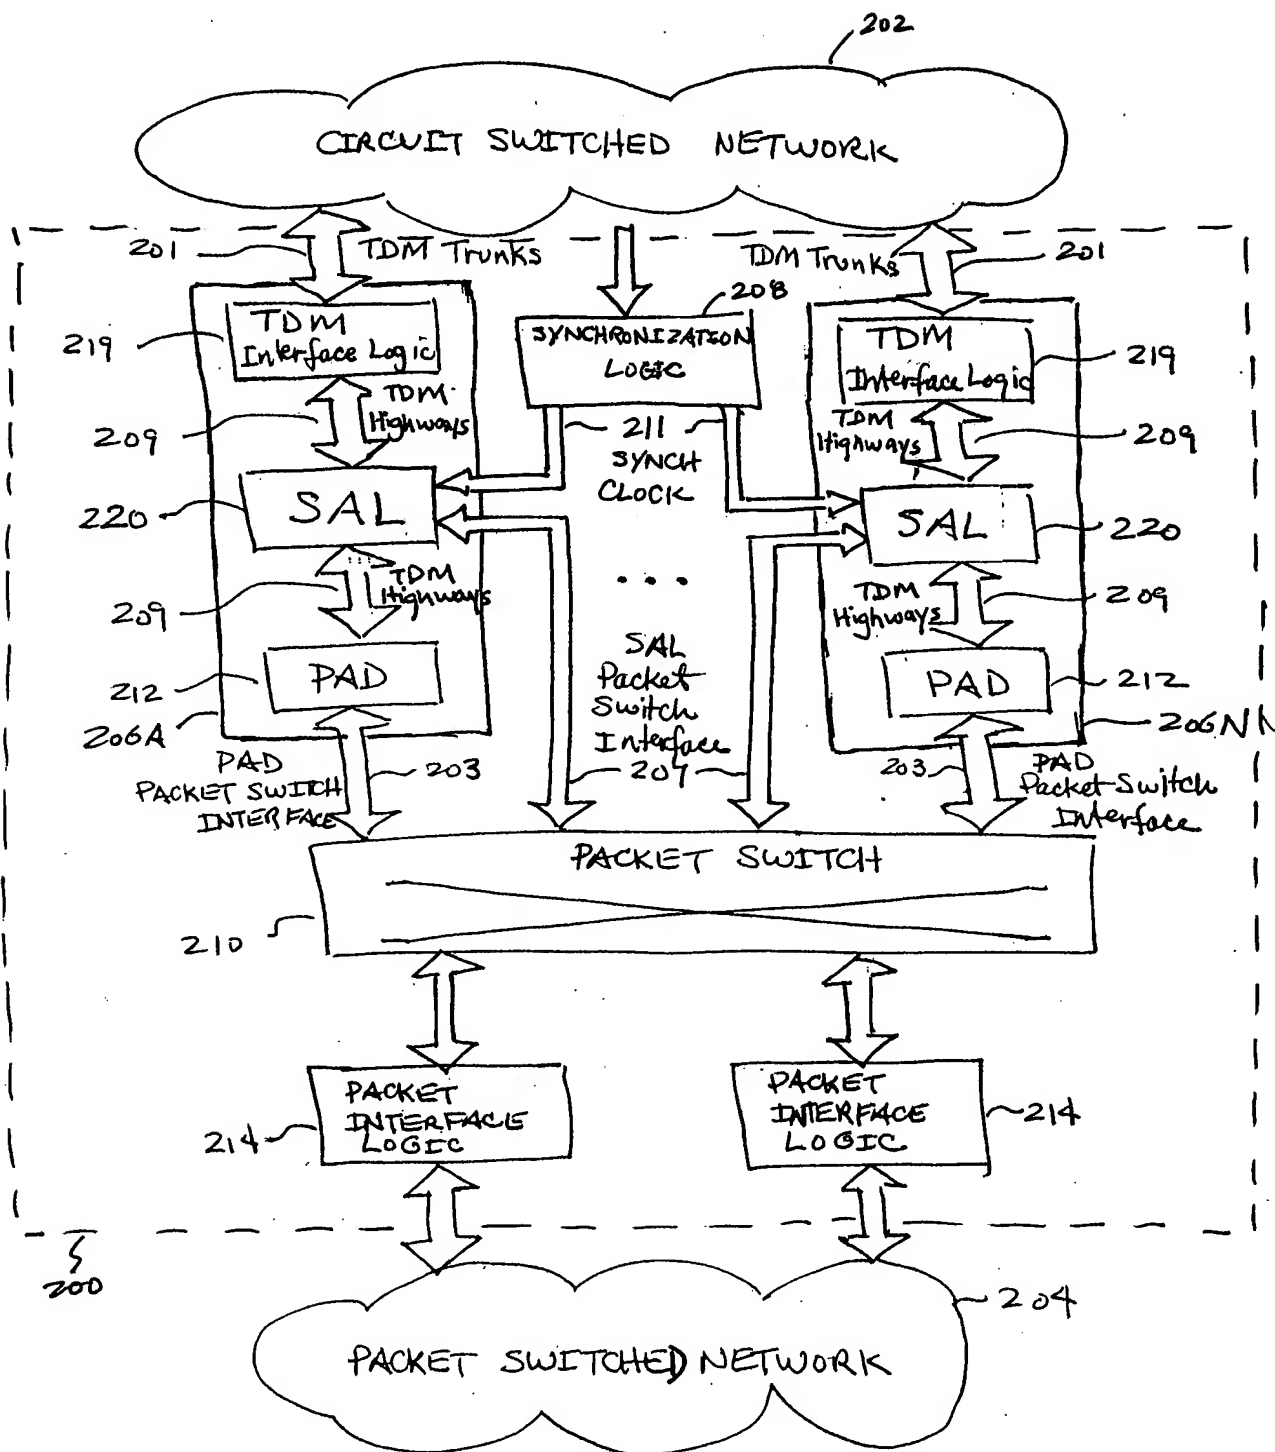 202
CIRCUIT SWITCHED NETWORK
201
TDM Trunks
TDM Trunks
201
208
219
TDM
Interface Logic
SYNCHRONIZATION
LOGIC
TDM
Interface Logic
219
209
TDM
Highways
211
SYNCH
CLOCK
TDM
Highways
209
220
SAL
SAL
220
...
209
TDM
Highways
TDM
Highways
209
SAL
Packet
Switch
Interface
212
PAD
PAD
212
206A
206N
PAD
PACKET SWITCH
INTERFACE
203
207
203
PAD
Packet Switch
Interface
PACKET SWITCH
210
PACKET
INTERFACE
LOGIC
214
PACKET
INTERFACE
LOGIC
214
200
204
PACKET SWITCHED NETWORK